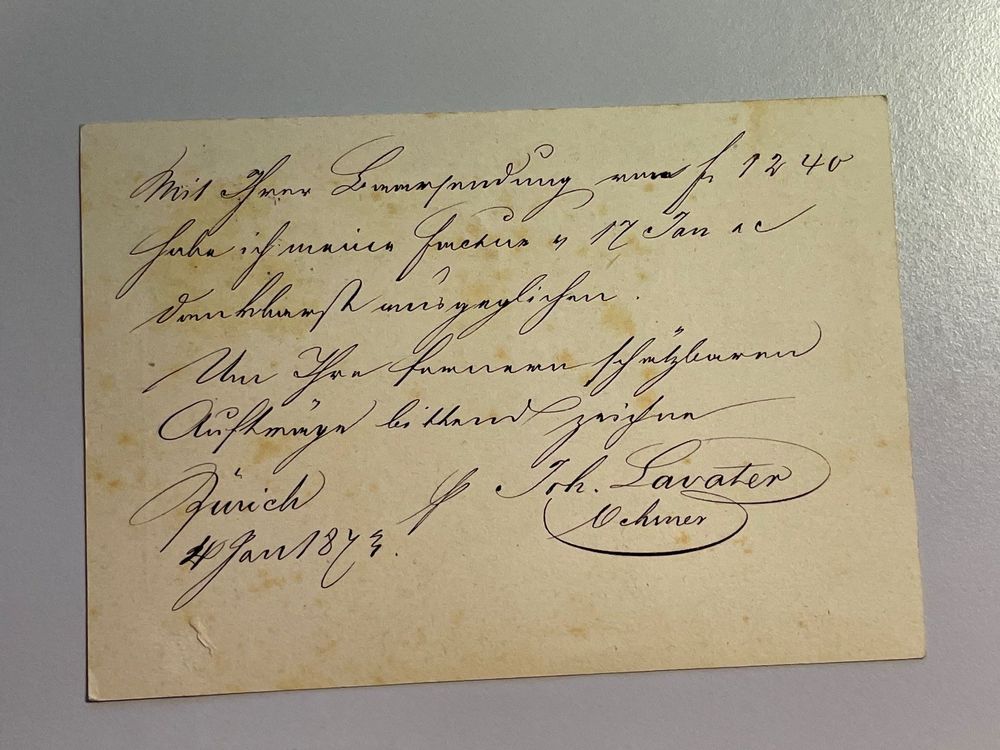 Mit Ihrer Baarsendung von f. 12 40
habe ich meine Factur v 17 Jan ac
dankbarst ausgeglichen.
Um Ihre fernern schätzbaren
Aufträge bittend zeichne
Zürich
Joh. Lavater
Jan 1873.